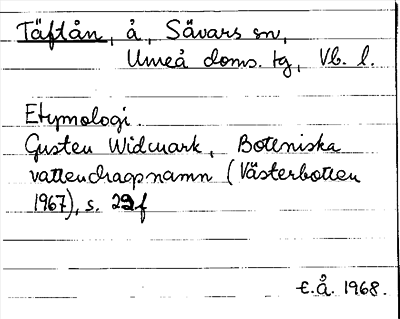 Täftån, å, Sävars sn,
Umeå doms. tg, Vb. l.
Etymologi.
Gusten Widmark, Boteniska
vattendragsnamn (Västerbotten
1967), s. 29f
E.Å. 1968.